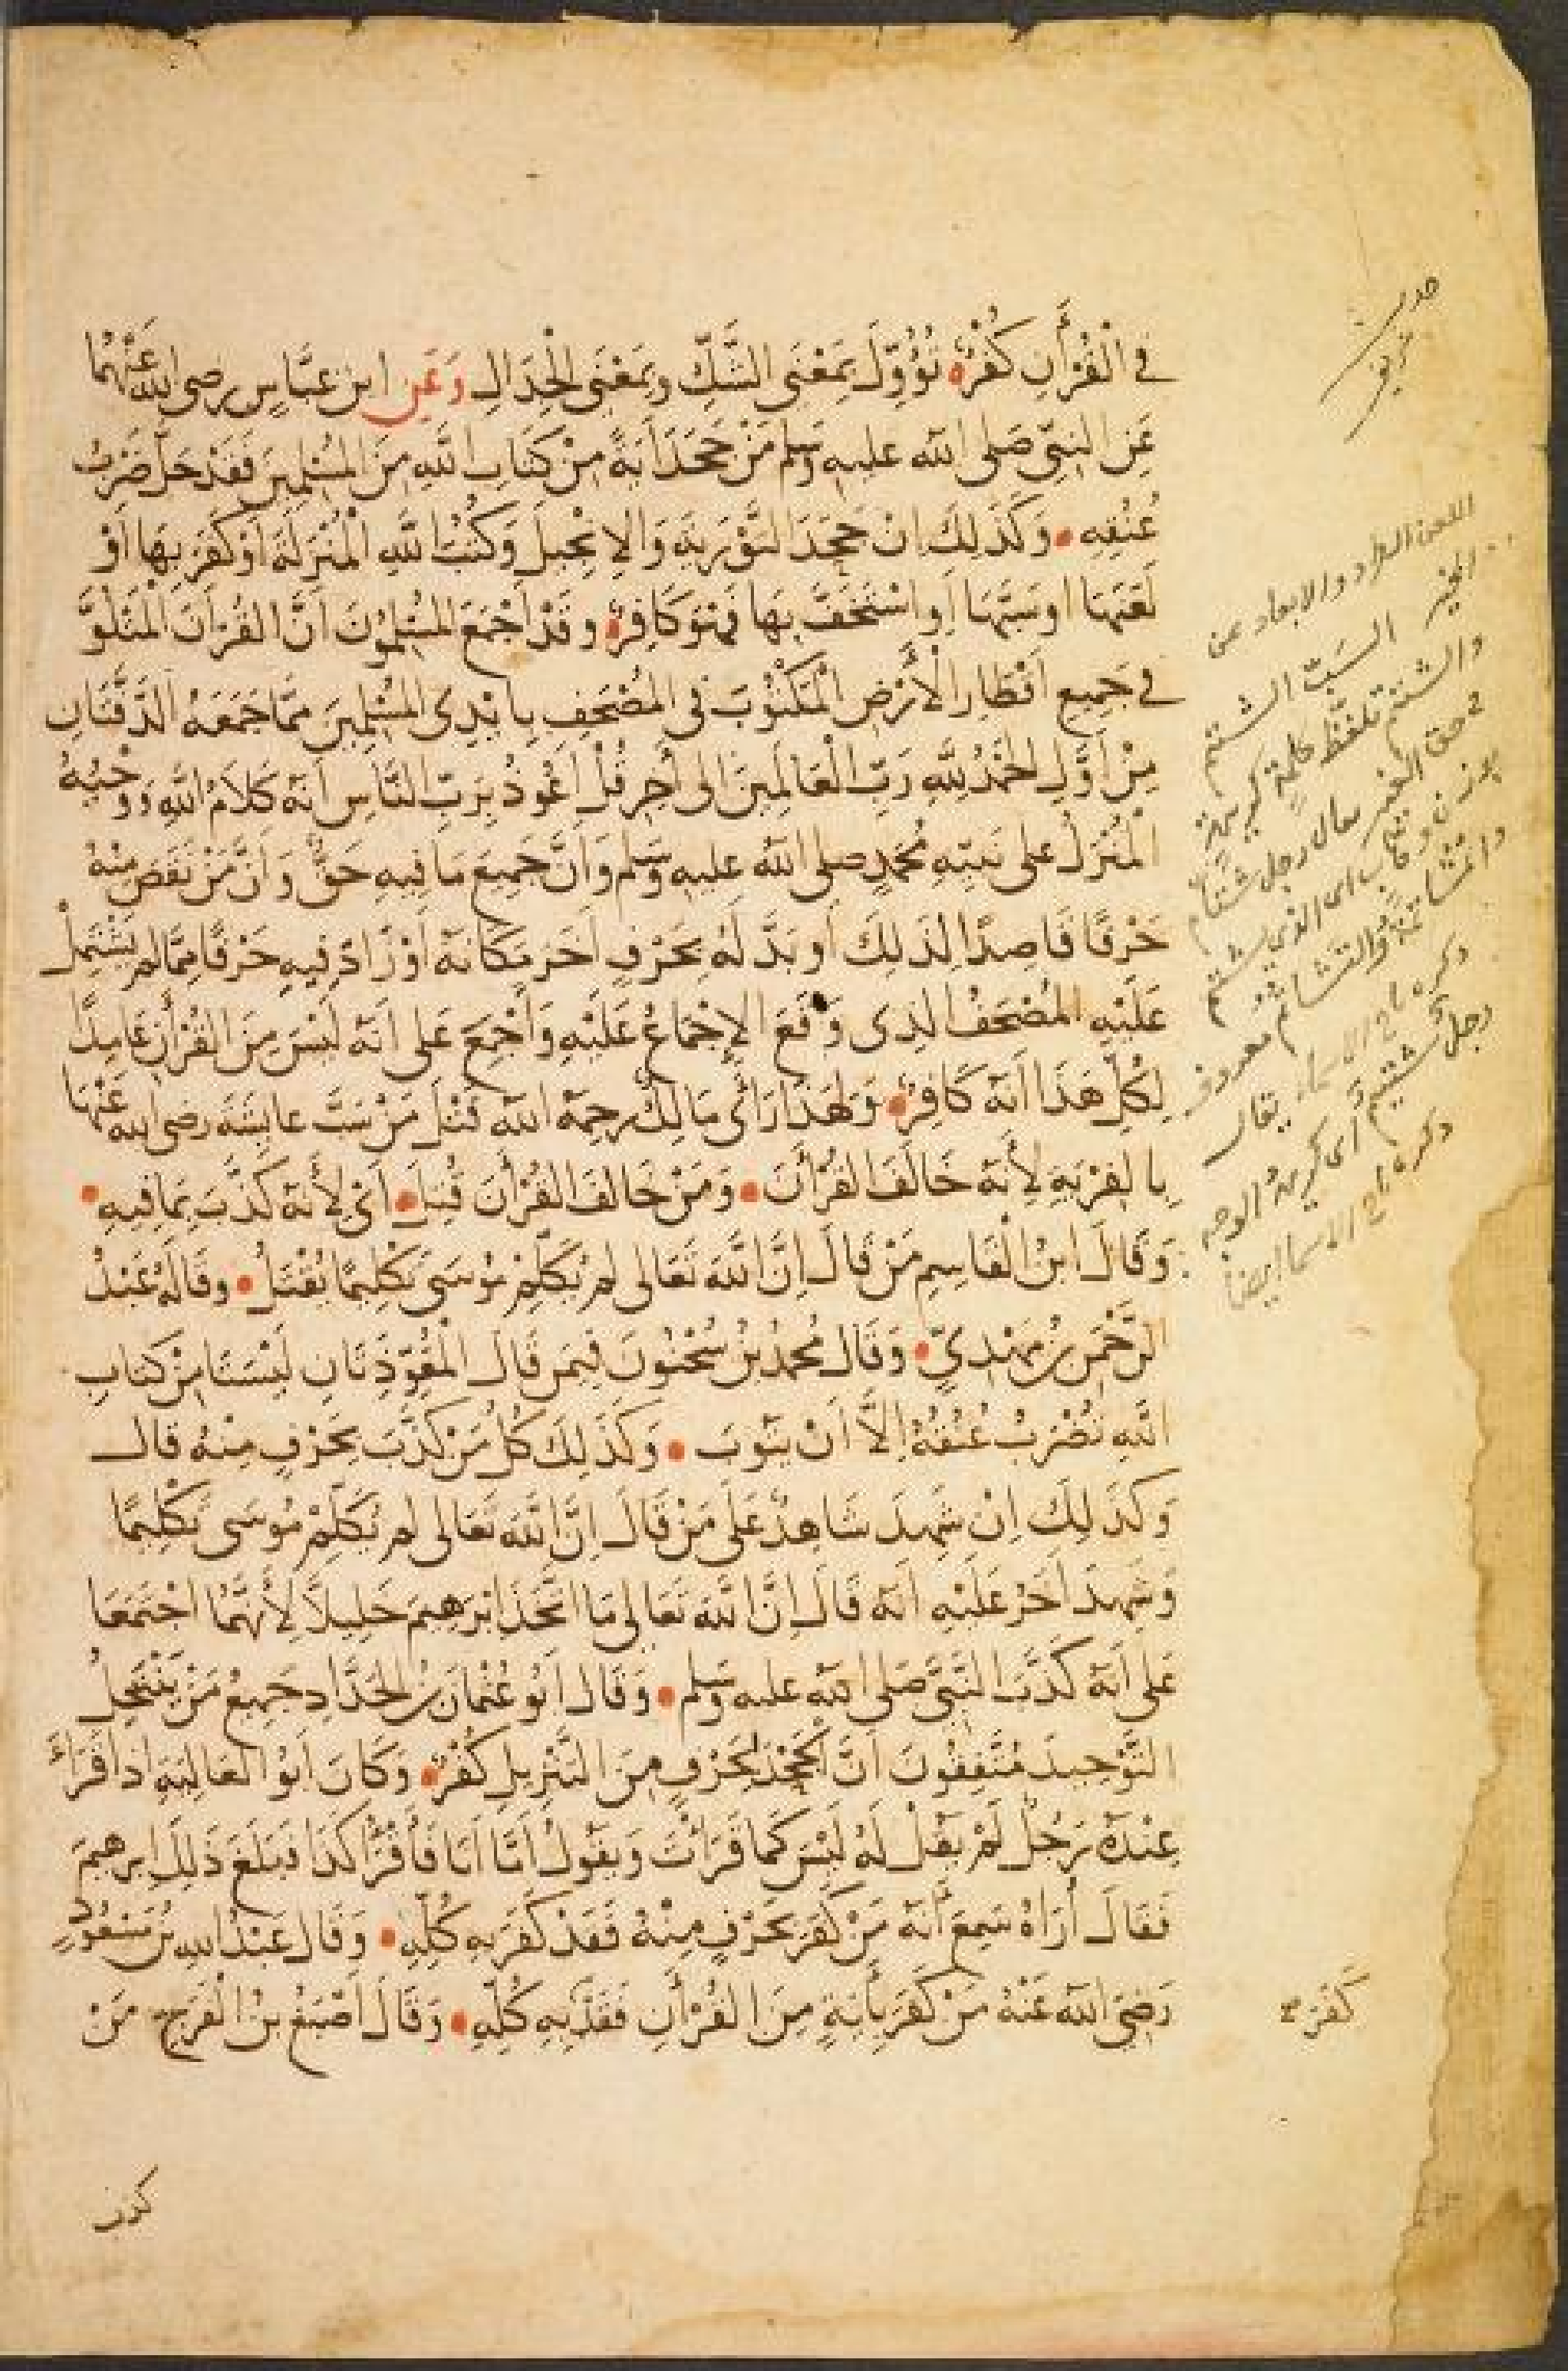 في الْقُرْأٰنِ كُفْرٌ تُؤُوِّلَ بِمَعْنَى الشَّكِّ وَبِمَعْنَى الْجِدَالِ وَعَنِ ابن عَبَّاسٍ رضى الله عَنْهُمَا
عَنِ النبيّ صَلى الله عليه وَسَلم مَنْ جَحَدَ اٰيَةً مِنْ كِتَابِ اللَّهِ مِنَ المُسْلِمِينَ فَقَدْ حَلَّ ضَرْبُ
عُنُقِهِ وَكَذَلِكَ اِنْ جَحَدَ التَّوْرَيةَ وَالاِنْجِيلَ وَكُتُبَ اللَّهِ الْمُنْزَلَةَ اَوْ كَفَرَ بِهَا اَوْ
لَعَنَهَا اوسَبَّهَا اَوِ اسْتَخَفَّ بِها فَهُوَ كَافِرٌ وقَدْ اَجْمَعَ المُسْلِمُونَ اَنَّ القُرْاٰنَ الْمَتْلُوَّ
في جَمِيعِ اَقْطَارِ الْأَرْضِ الْمَكْتُوبَ فى المُصْحَفِ بِاَيْدِى المُسْلِمِينَ مِمَّا جَمَعَهُ الدَّفَّتَانِ
مِنْ اَوَّلِ الْحَمْدُ لِلَّهِ رَبِّ الْعَالَمِينَ الى اٰخِرِ قُلْ اَعُوذُ بِرَبِّ النَّاسِ اَنَّهُ كَلاَمُ اللَّهِ وَوَحْيُهُ
الْمُنْزَلُ على نَبِيِّهِ مُحَمَّدٍ صلى الله عليه وَسَلم وَاَنَّ جَمِيعَ مَا فِيهِ حَقٌّ وَاَنَّ مَنْ نَقَصَ مِنْهُ
حَرْفًا قَاصِدًا لِذَلِكَ اَو بَدَّلَهُ بِحَرْفٍ اٰخَرَ مَكَانَهُ اَوْ زَادَ فِيهِ حَرْفًا مِمَّا لم يَشْتَمِلْ
عَلَيْهِ المُصْحَفُ الذِى وَقَعَ الاِجْمَاعُ عَلَيْهِ وَاُجْمِعَ عَلى اَنَّهُ لَيْسَ مِنَ القُرْأٰنِ عَامِدًا
لِكُلِّ هَذَا اَنَّهُ كَافِرٌ وَلِهَذَا رَاَى مَالِكٌ رحِمَهُ الله قَتْلَ مَنْ سَبَّ عايِشَةَ رضى الله عَنْهَا
بِالفِرْيَةِ لِأَنَّهُ خَالَفَ القُرْأٰنَ وَمَنْ خَالَفَ القُرْأٰنَ قُتِلَ اَىْ لِأَنَّهُ كَذَّبَ بِمَا فِيهِ
وَقَالَ ابْنُ الْقَاسِمِ مَنْ قَالَ اِنَّ اللَّهَ تَعَالى لم يُكَلِّمْ مُوسَى تَكْلِيمًا يُقْتَلُ وقَالَهُ عَبْدُ
الرَّحْمَنِ بْنُ مَهْدِيٍّ وَقَالَ مُحمدُ بْنُ سُحْنُونَ فيمَن قَالَ الْمُعَوِّذَتَانِ لَيْسَتَا مِنْ كتابِ
اللَّهِ تُضْرَبُ عُنُقُهُ اِلاَّ اَنْ يَتُوبَ وَكَذَلِكَ كُلُّ مَنْ كَذَّبَ بِحَرْفٍ مِنْهُ قال
وَكَذَلِكَ اِنْ شَهِدَ شَاهِدٌ عَلَى مَنْ قَالَ اِنَّ اللَّهَ تَعَالى لم يُكَلِّمْ مُوسَى تَكْلِيمًا
وَشَهِدَ اٰخَرُ عَلَيْهِ اَنَّهُ قَالَ اِنَّ اللَّهَ تَعَالى مَا اتَّخَذَ اِبْرَهِيمَ خَلِيلاً لِأَنَّهُمَا اجْتَمَعَا
عَلى اَنَّهُ كَذَّبَ النَّبيَّ صَلى الله عليه وَسَلم وَقَالَ اَبُو عُثْمَانَ بْنُ الْحَدَّادِ جَمِيعُ مَنْ يَنْتَحِلُ
التَّوْحِيدَ مُتَّفِقُونَ اَنَّ الْجَحْدَ بِحَرْفٍ مِنَ التَّنْزِيلِ كُفْرٌ وَكَانَ اَبُو العَالِيَةِ اِذَا قَرَاَ
عِنْدَهُ رَجُلٌ لَمْ يَقُلْ لَهُ لَيْسَ كَمَا قَرَاْتَ وَيَقُولُ اَمَّا اَنَا فَأَقْرَأُ كَذَا فَبَلَغَ ذَلِكَ اِبرهيمَ
فَقَالَ اُرَاهُ سَمِعَ اَنَّهُ مَنْ كَفَرَ بحَرْفٍ مِنْهُ فَقَدْ كَفَرَ بِهِ كُلِّهِ وَقَالَ عَبْدُ اللهِ بْنُ مَسْعُودٍ
رَضِيَ الله عَنْهُ مَنْ كَفَرَ بِأٰيَةٍ مِنَ القُرْأٰنِ فَقَدْ بِهِ كُلِّهِ وَقَالَ اَصْبَغُ بنُ الْفَرَجِ مَنْ
حديث
شريف
اللعن الطراد والابعاد عن
الخير السَبّ الشتم
والشتم تلفّظ كلمةٍ كريهةٍ
في حق الغير يقال رجل شتّام
اى الذي يشتم
والمُشاتمة والتشاتمُ معروف
ذكره في الاسماء يقال
رجل شتيمٌ اى كريهُ الوجه
ذكره في الاسما ايضا
كَفَرَ صح
كذب